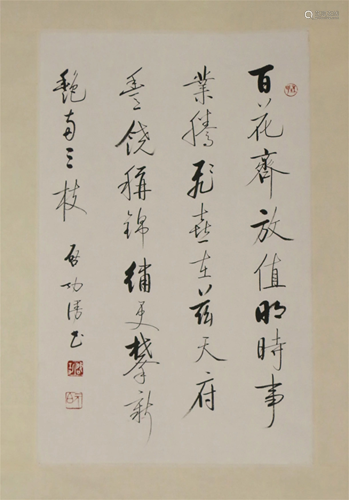 百花齊放值明時事
業騰飛喜在茲天府
豐饒稱錦繡更攀新
艷兩三枝 啓功